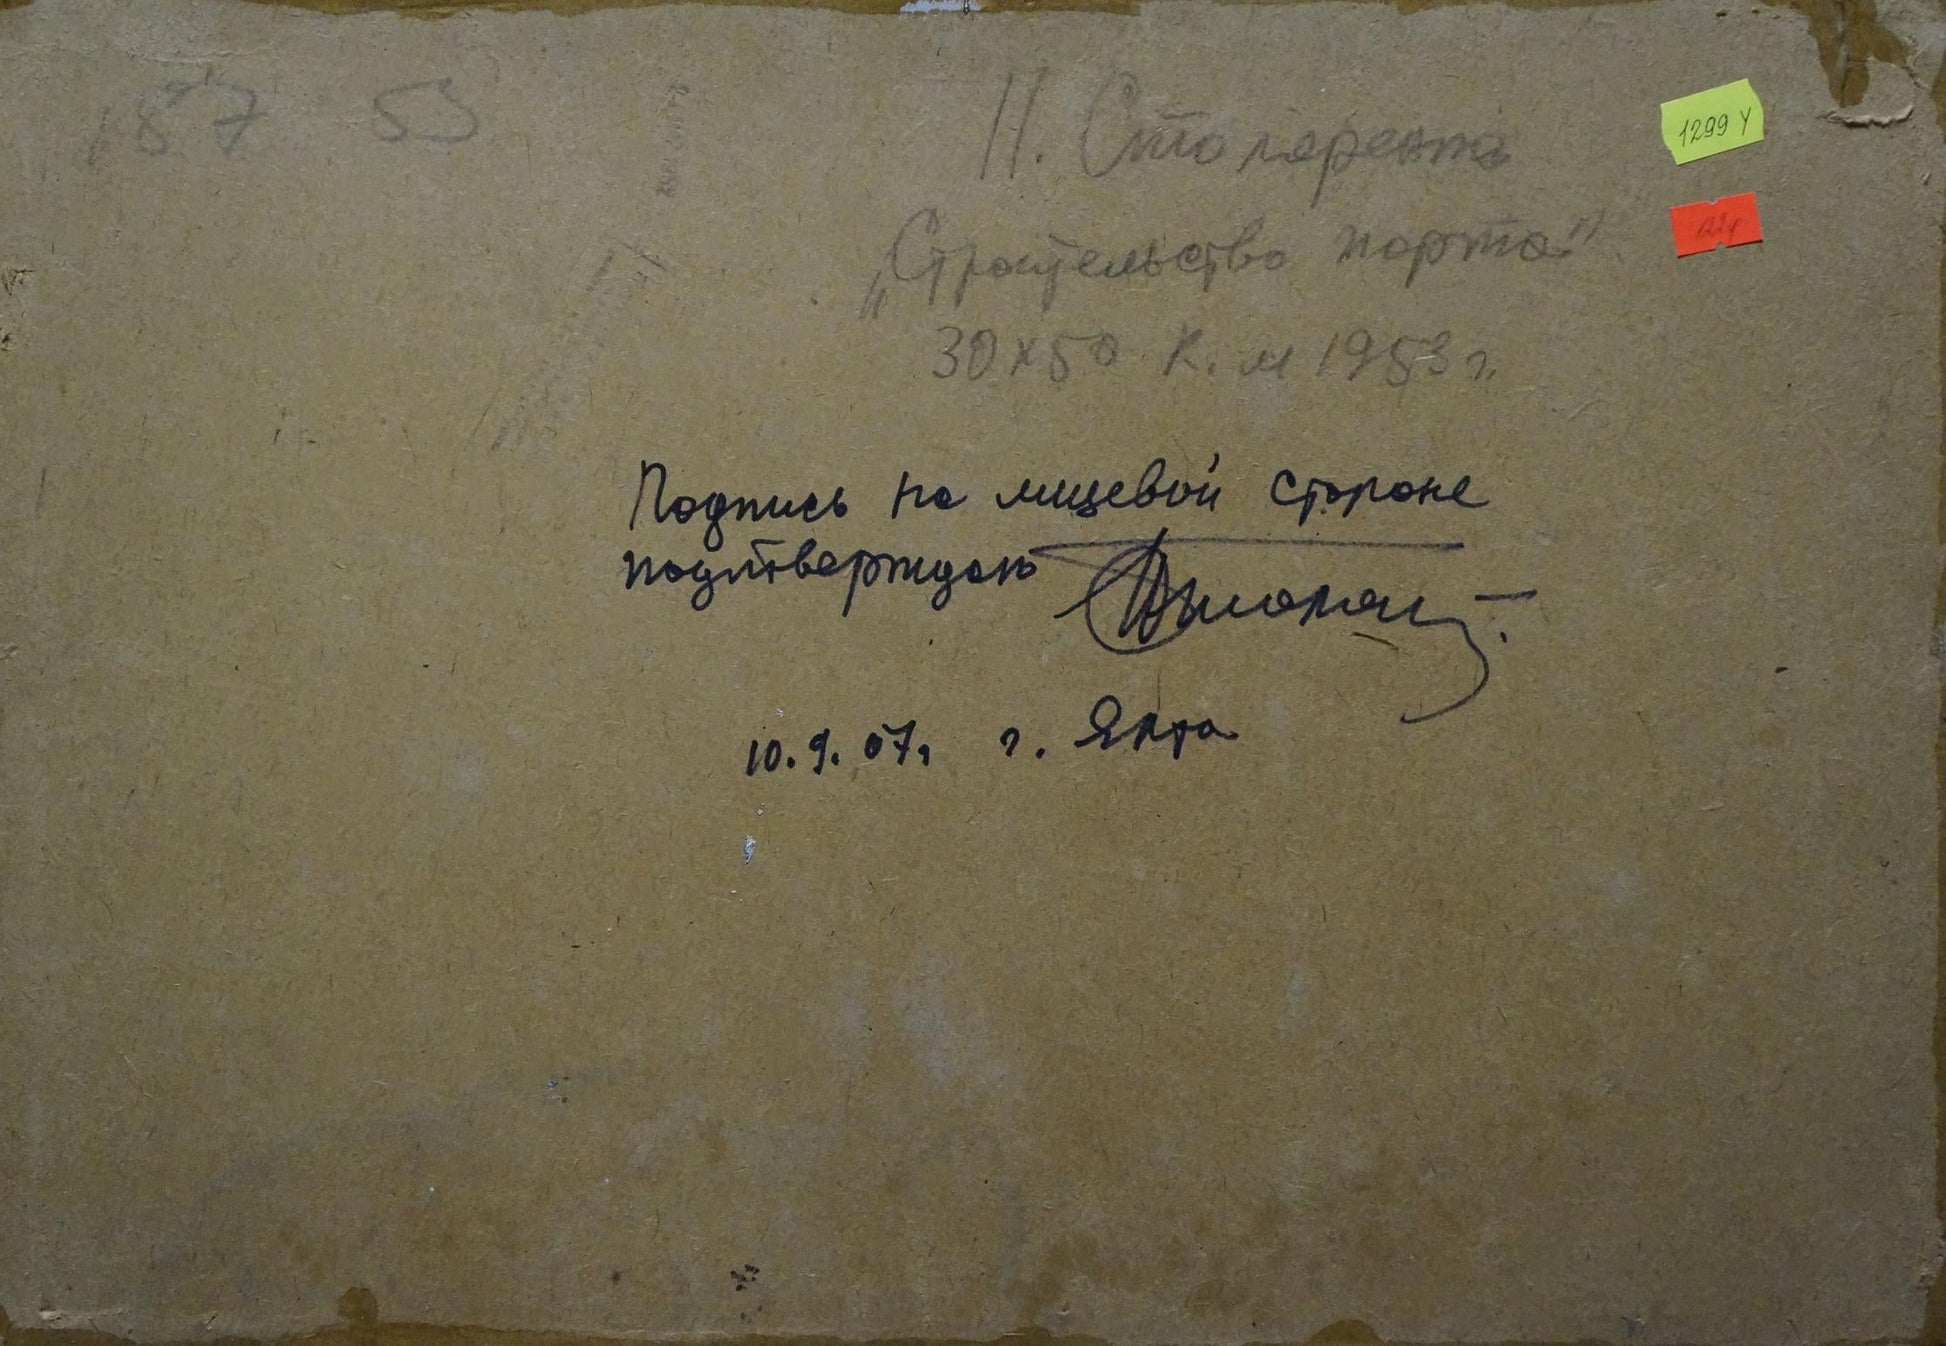 187 53
Н. Столярента
1299 У
„Строительство порта"
30х50 К. м 1953 г.
Подпись на лицевой стороне
подтверждаю
10.9.07, г. Ялта